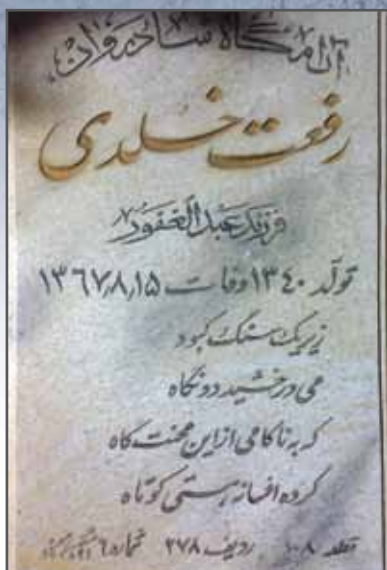 آرامگاه شادروان
رفعت خلدی
فرزند عبدالغفور
تولد ۱۳۴۰ وفات ۱۳۶۷٫۸٫۱۵
زیر یک سنگ کبود
می درخشید دو نگاه
که به ناکامی از این محنت گاه
کرده افسانه هستی کوتاه
قطعه ۱۰۸ ردیف ۲۷۸ شماره ۶